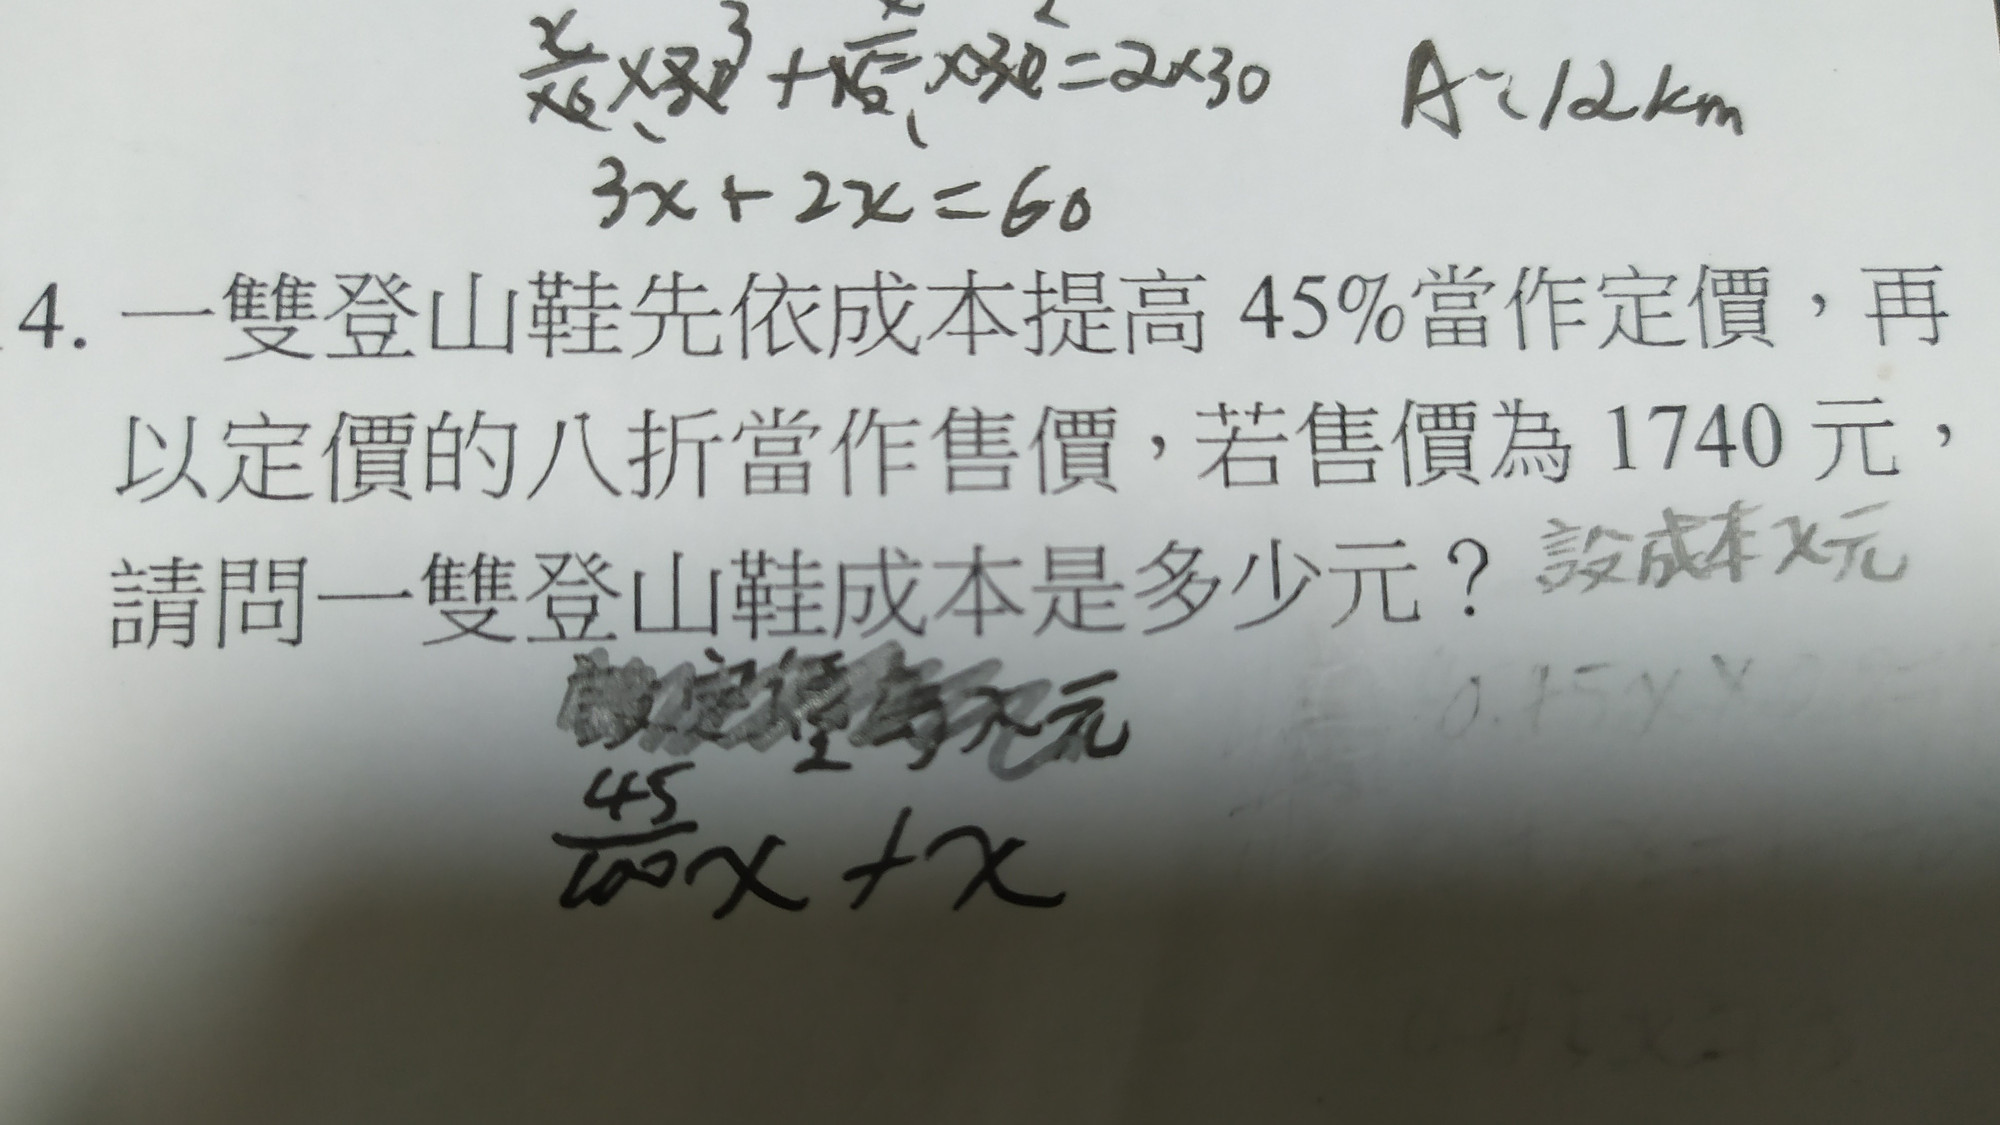 x/x6 × 30 3 + x/x5 × 30 2 = 2×30
A: 12km
3x + 2x = 60
4. 一雙登山鞋先依成本提高 45%當作定價，再
以定價的八折當作售價，若售價為 1740 元，
請問一雙登山鞋成本是多少元？ 設成本x元
x元
45/100 x + x